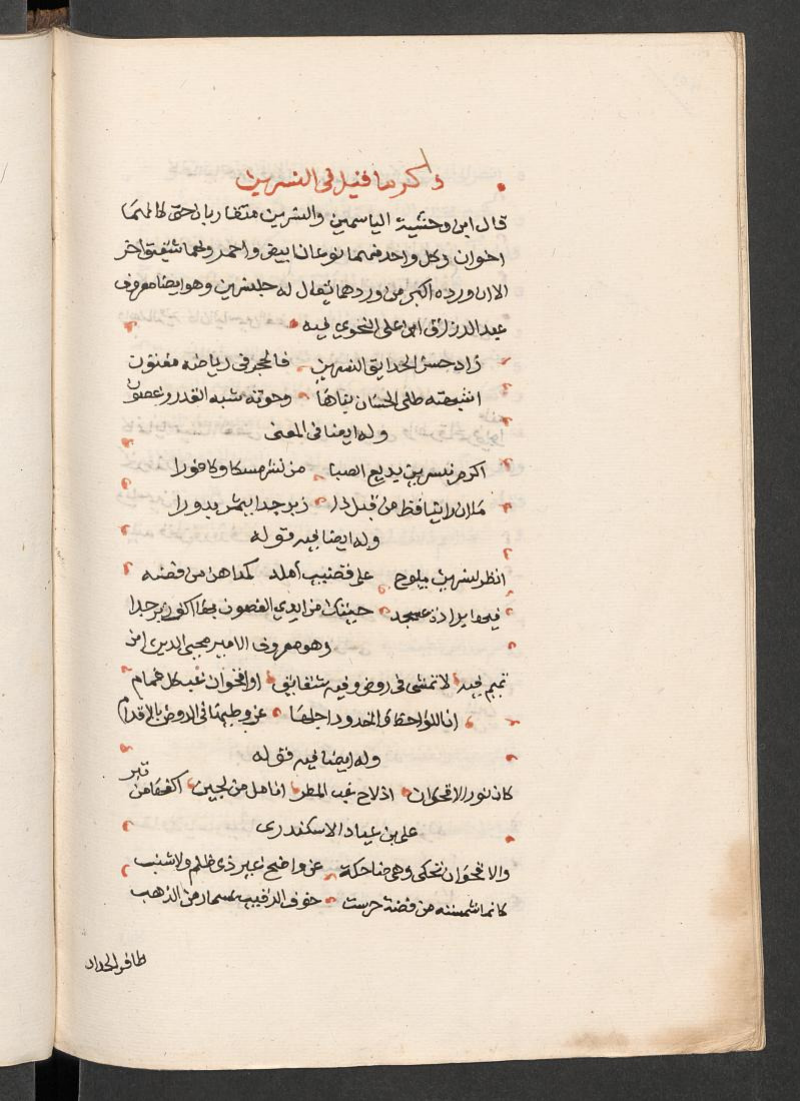 ذكر ما قيل في النسرين
قال ابن وحشية الياسمين والنسرين متقاربان حتى كانهما
اخوان وكل واحد منهما نوعان ابيض واحمر ولهما شقيق اخر
الا ان ورده اكبر من وردهما يقال له جلنسرين وهو ايضا معروف
عبد الرزاق ابن علي النحوي فيه
زاد حسن الحدايق النسرين فالحجر في رياضه مفتون
اشبهته طلى الحسان بياضا وحوته شبه القدود غصون
وله ايضا في المعنى
اكرم بنسرين يذيع الصبا من نشره مسكا وكافورا
ما ان راينا قط من قبل ذا زبرجدا يثمر بدورا
وله ايضا فيه قوله
انظر لنسرين يلوح على قضيب املد كمداهن من فضة
فيها برادة عسجد حيتك من ايدي الغصون بها اكف زبرجدا
وهو معروف الامير مجير الدين ابن
تميم فيه لا تمشي في روض وفيه شقايق او اقحوان غب كل غمام
ان اللواحظ والخدود اجلها عن وطيها في الروض بالاقدام
وله ايضا فيه قوله
كان نور الاقحوان اذ لاح غب المطر انامل من لجين اكفها من تبر
علي بن عباد الاسكندري
والاقحوان تحكي وهي ضاحكة عن واضح غير ذي ظلم ولا شنب
كانما شمسته من فضة حرست خوف الرقيب بمسمار من الذهب
ظافر الحداد